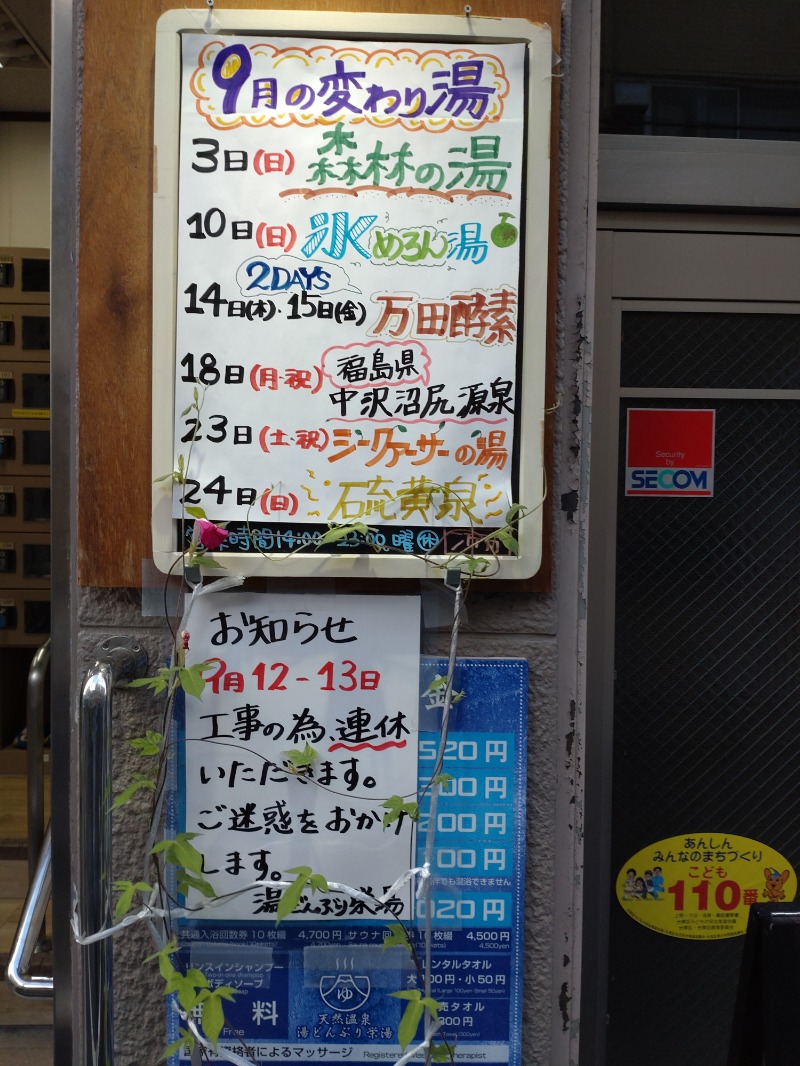 9月の変わり湯
3日(日) 森林の湯
10日(日) 氷めろん湯
2DAYS
14日(木)・15日(金) 万田酵素
18日(月・祝) 福島県
中沢沼尻源泉
23日(土・祝) シークァーサーの湯
24日(日) 硫黄泉
時間14:00 曜㊡
お知らせ
9月12-13日
工事の為、連休
いただきます。
ご迷惑をおかけ
します。
湯どんぶり栄湯
金
520円
00円
200円
00円
でも混浴できません
020円
共通入浴回数券10枚綴 4,700円 サウナ回 10枚綴 4,500円
4,500yen
リンスインシャンプー
ボディソープ
無料
Free
ゆ
天然温泉
湯どんぶり栄湯
レンタルタオル
大100円・小50円
売タオル
300円
資格者によるマッサージ Registered therapist
Security
by
SECOM
あんしん
みんなのまちづくり
こども
110番